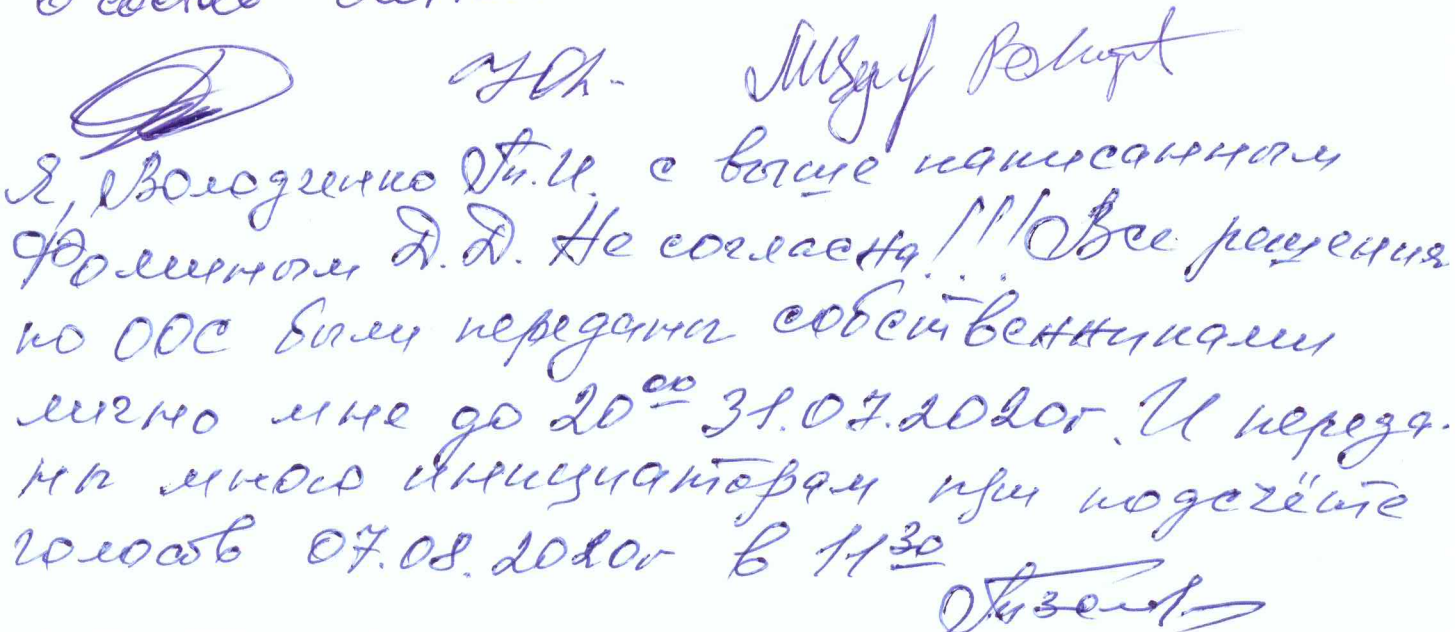 Я, Володченко Т.И. с выше написанным
Фоминым Д.Д. Не согласна!!! Все решения
по ООС были переданы собственниками
лично мне до 20⁰⁰ 31.07.2020г. И переда-
ны мною инициаторам при подсчёте
голосов 07.08.2020г в 11³⁰